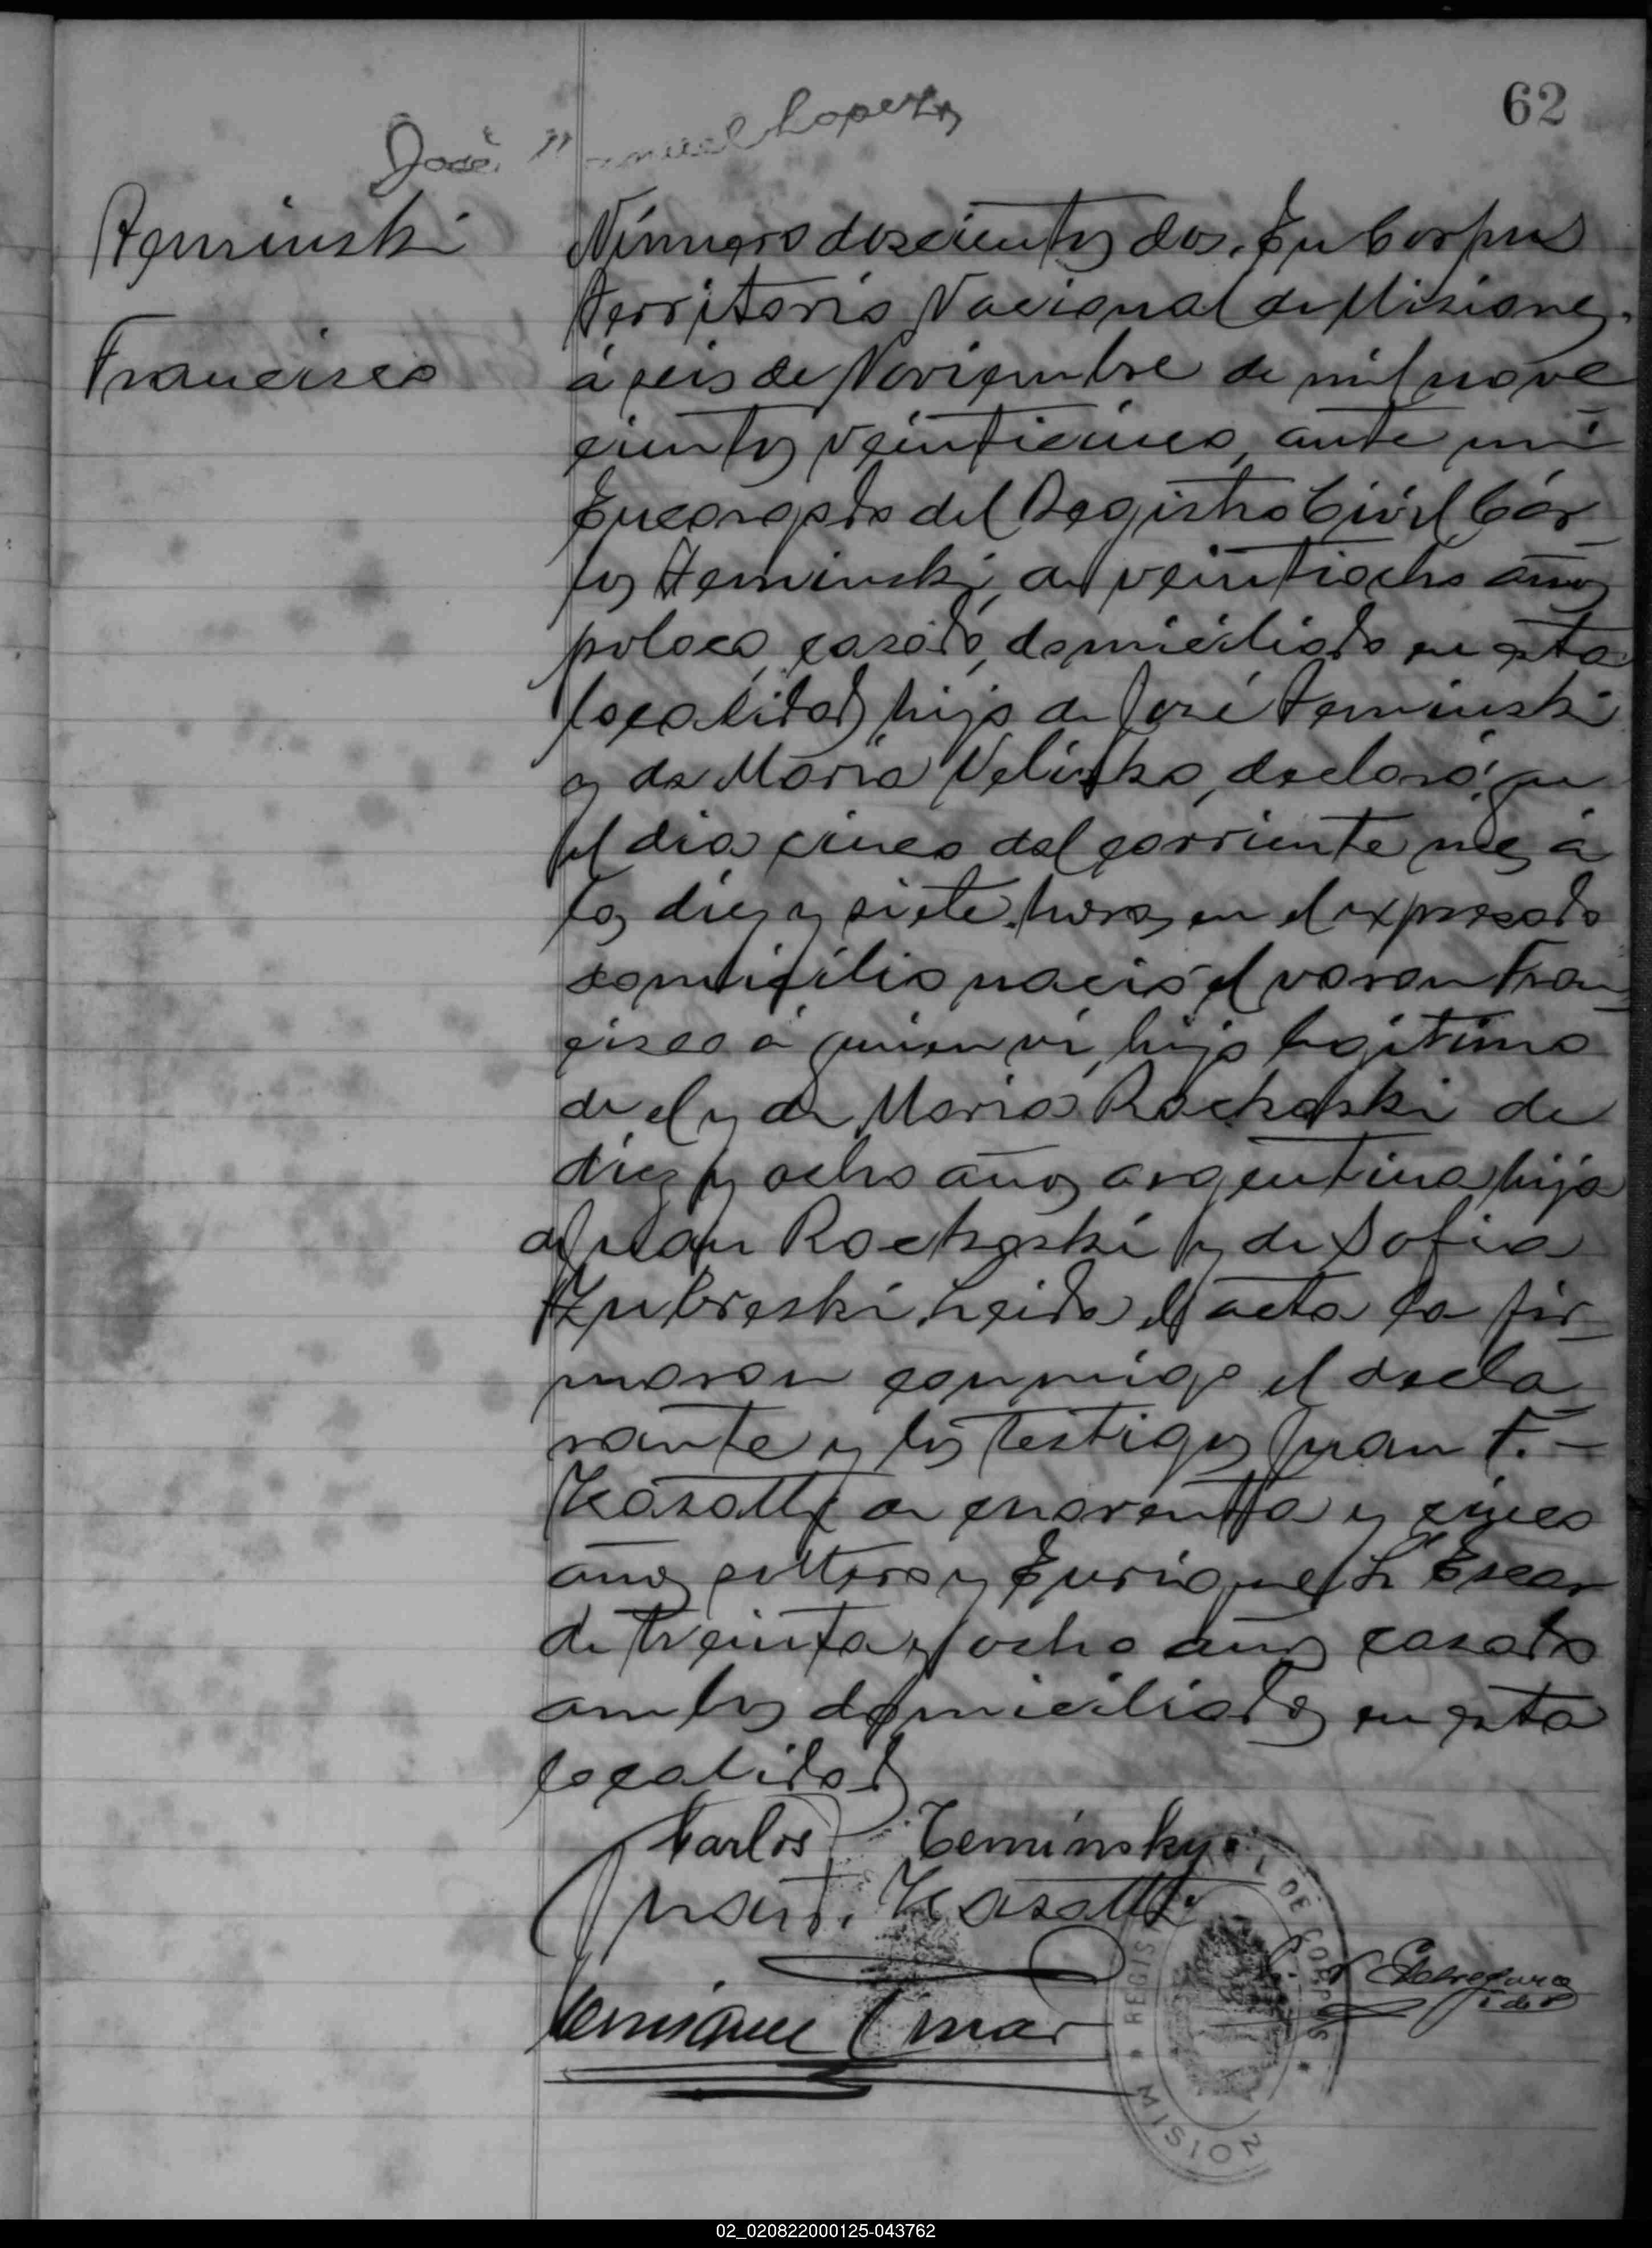 62
José Manuel Lopez
Teminski
Francisco
Número doscientos dos. En Corpus
Territorio Nacional de Misiones,
á seis de Noviembre de mil nove
cientos veinticinco, ante mí
Encargado del Registro Civil Cár-
los Teminski, de veintiocho años
polaco, casado, domiciliado en esta
localidad, hijo de José Teminski
y de María Velisko, declaró: que
el dia cinco del corriente mes á
las diez y siete horas en el expresado
domicilio nació el varon Fran-
cisco á quien ví, hijo legítimo
de el y de María Rockoski de
diez y ocho años argentina hija
de Juan Rockoski y de Sofia
Zubreski. Leida el acta la fir-
maron conmigo el decla-
rante y los testigos Juan F. -
Kasatti de cuarenta y cinco
años soltero y Enrique
de treinta y ocho años casado
ambos domiciliados en esta
localidad
Carlos Teminsky.
Juan F. Kasatti
Enrique
REGIS DE CORPUS
MISION
02_020822000125-043762